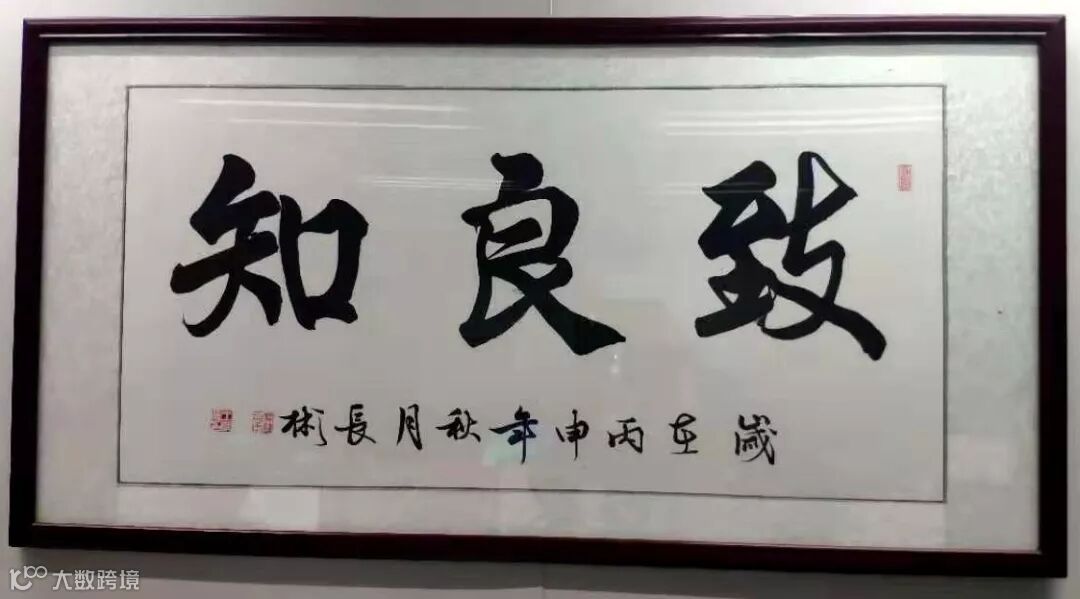 致良知
歲在丙申年秋月長彬
大数跨境